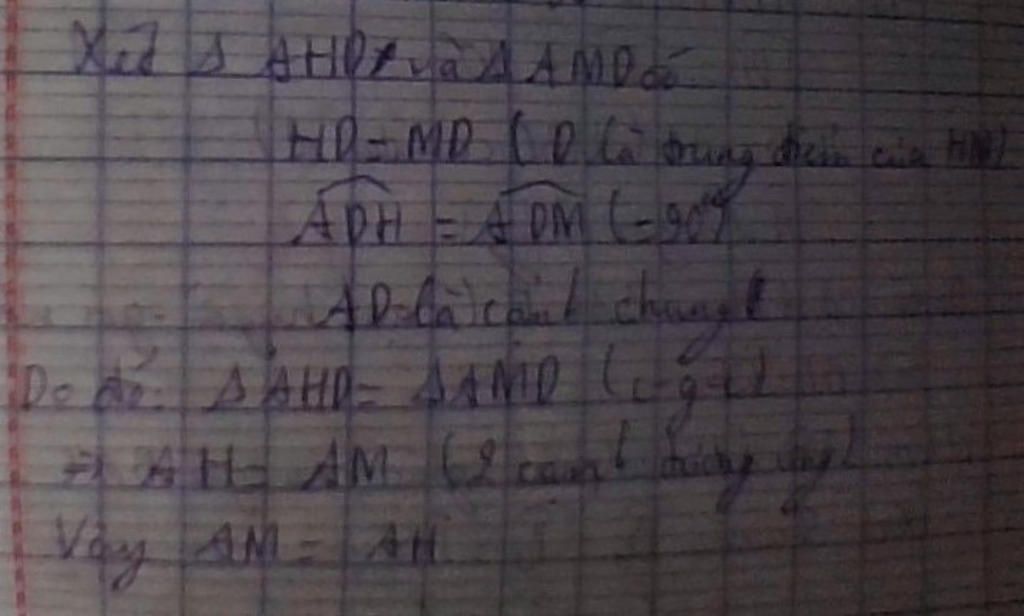 Xét Δ AHD và Δ AMD có
HD = MD ( D là trung điểm của HM)
ADH = ADM (=90°)
AD là cạnh chung
Do đó: Δ AHD = Δ AMD (c-g-c)
=> AH = AM (2 cạnh tương ứng)
Vậy AM = AH